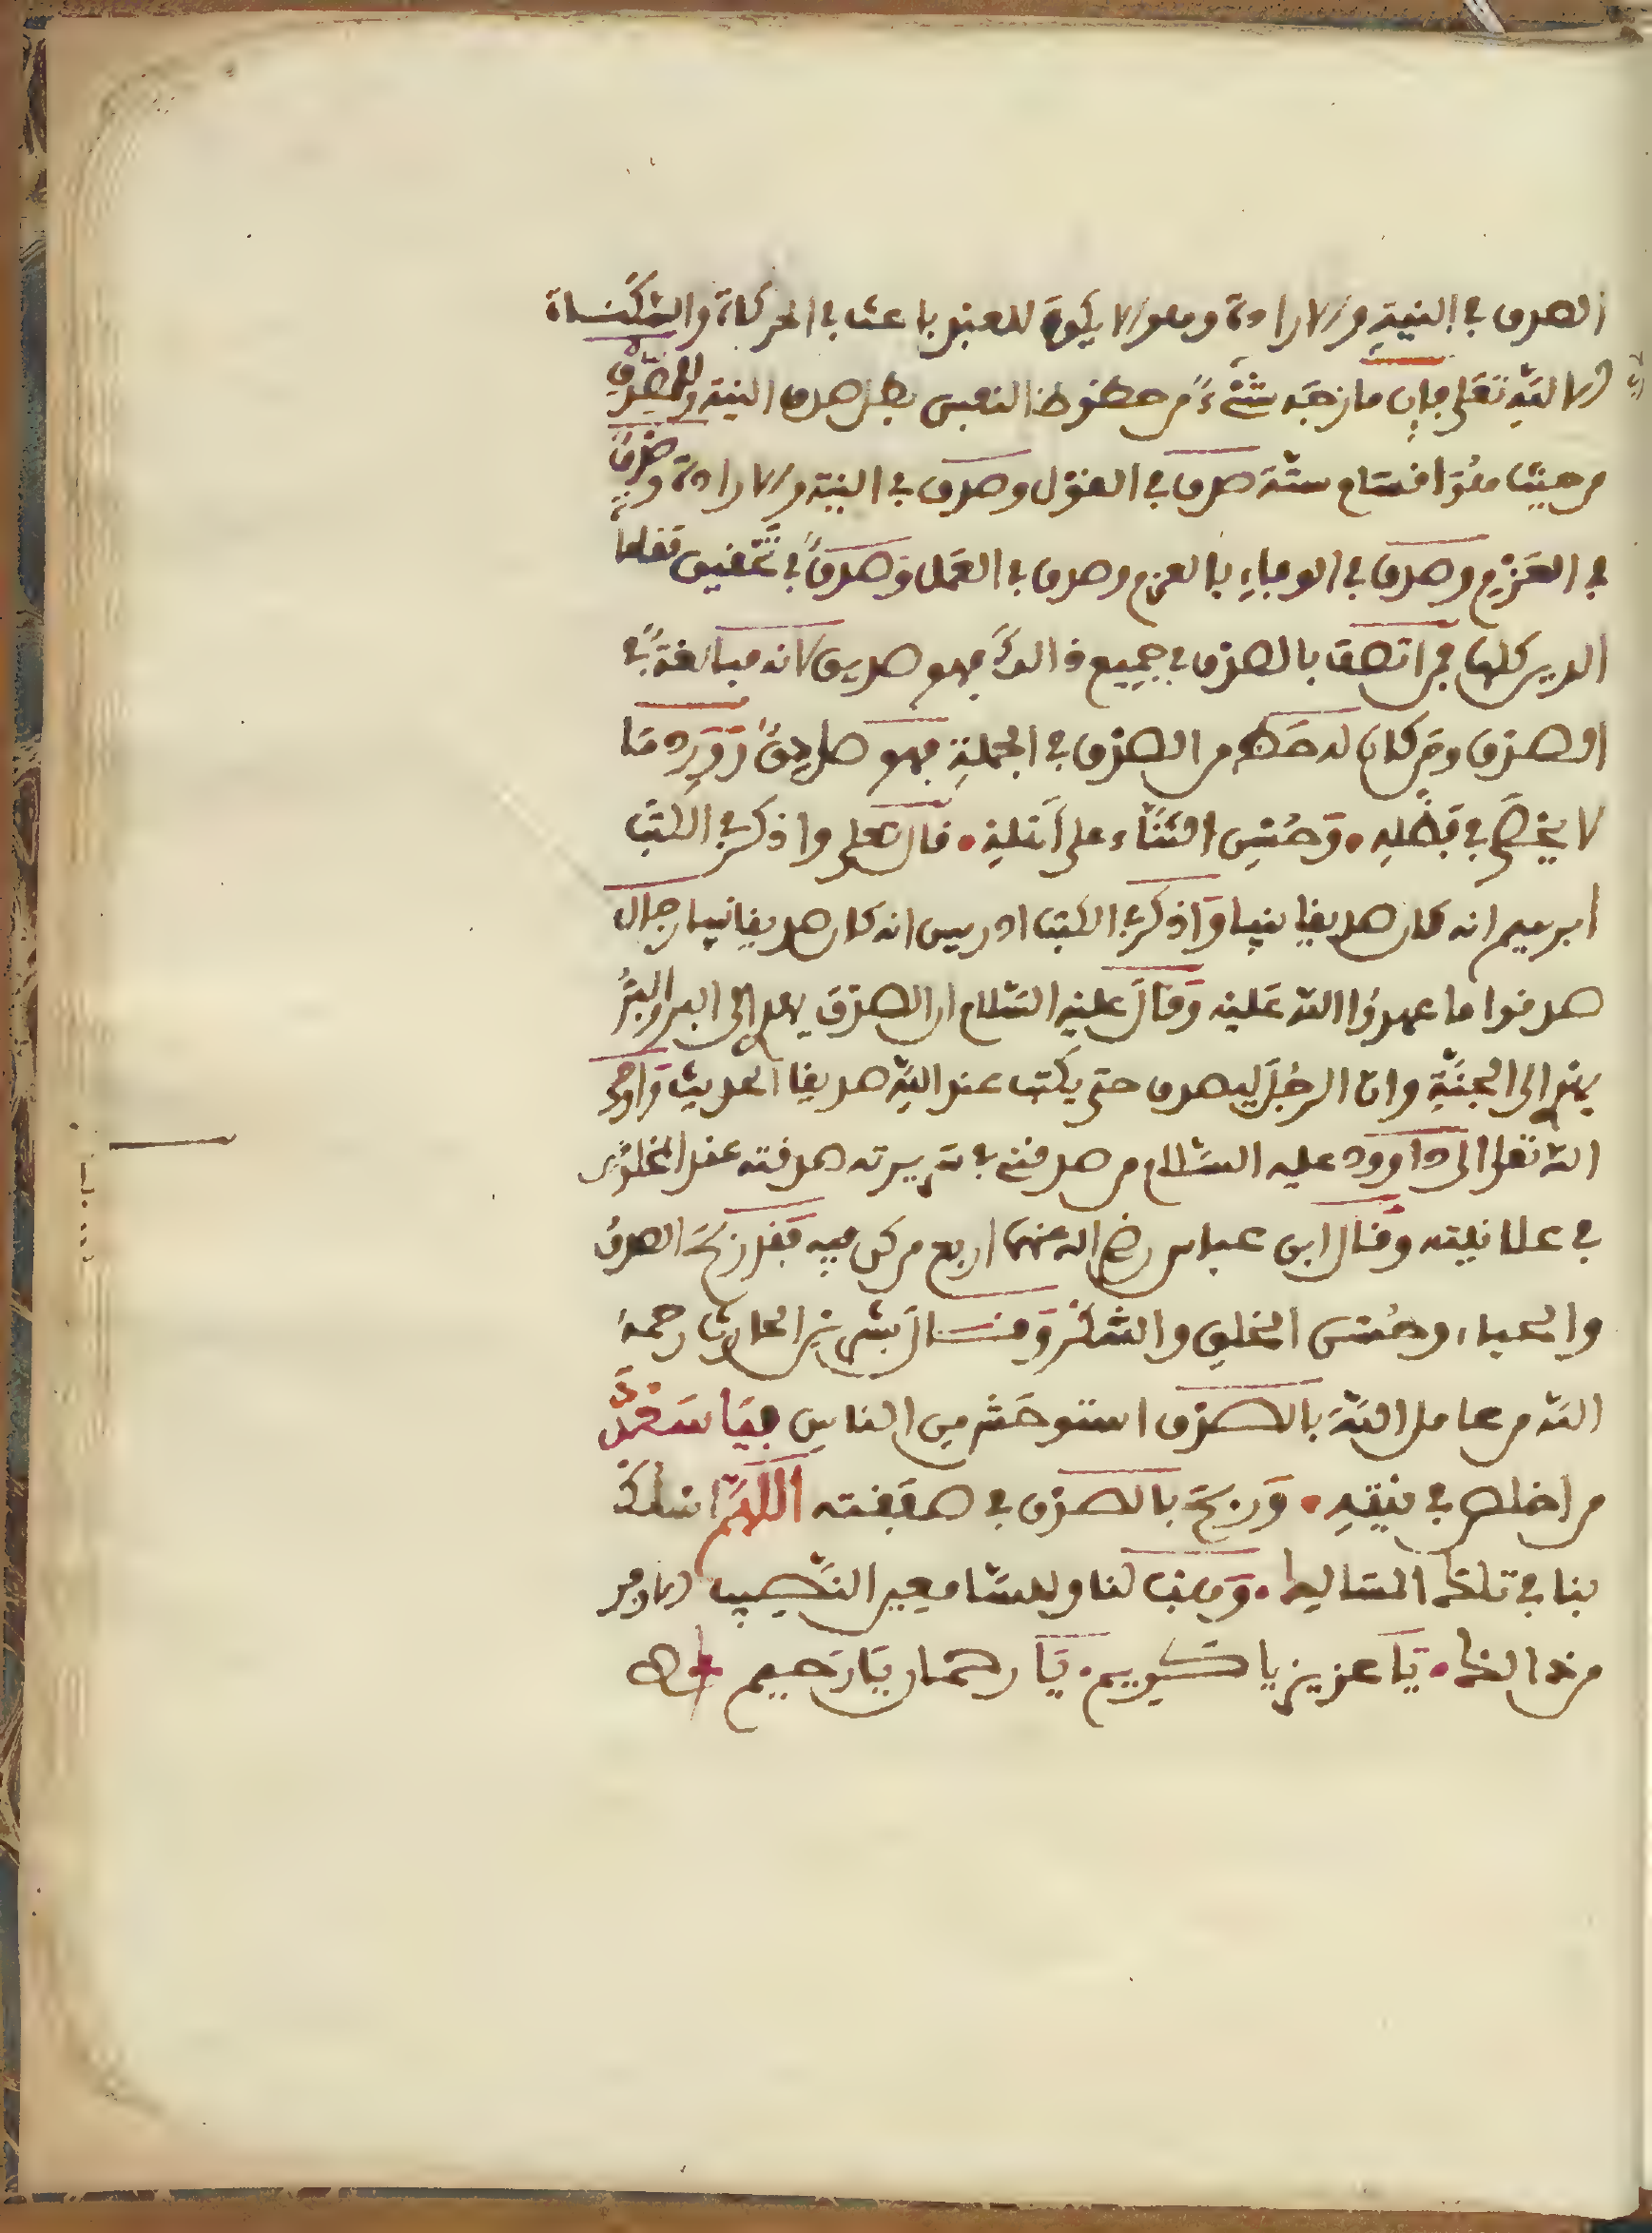 الصدق في النية والارادة وهو الا يكون للعبد باعث في الحركات والسكنات
الا الله تعلى فإن مازجه شيء من حظوظ النفس بطل صدق النية وللصدق
من حيث هو اقسام ستة صدق في القول وصدق في النية والارادة وصدق
في العزم وصدق في الوفاء بالعزم وصدق في العمل وصدق في تحقيق مقامات
الدين كلها فمن اتصف بالصدق في جميع ذالك فهو صديق لانه مبالغة في
الصدق ومن كان له حظ من الصدق في الجملة فهو صادق وورد ما
لا يحصى في فضله وحسن الثناء على أهله قال تعلى واذكر في الكتب
ابرهيم انه كان صديقا نبيا واذكر في الكتب ادريس انه كان صديقا نبيا رجال
صدقوا ما عهدوا الله عليه وقال عليه السلام ان الصدق يهدي الى البر والبر
يهدي الى الجنة وان الرجل ليصدق حتى يكتب عند الله صديقا الحديث واوحى
الله تعلى الى داوود عليه السلام من صدقني في سريرته صدقته عند المخلوقين
في علانيته وقال ابن عباس رضي الله عنهما اربع من كن فيه فقد ربح الصدق
والحياء وحسن الخلق والشكر وقال بشر بن الحارث رحمه
الله من عامل الله بالصدق استوحش من الناس فيا سعد
من اخلص في نيته وربح بالصدق في صفقته اللهم اسلك
بنا في تلك المسالك وهب لنا وللسامعين النصيب الاوفر
من ذالك يا عزيز يا كريم يا رحمان يا رحيم